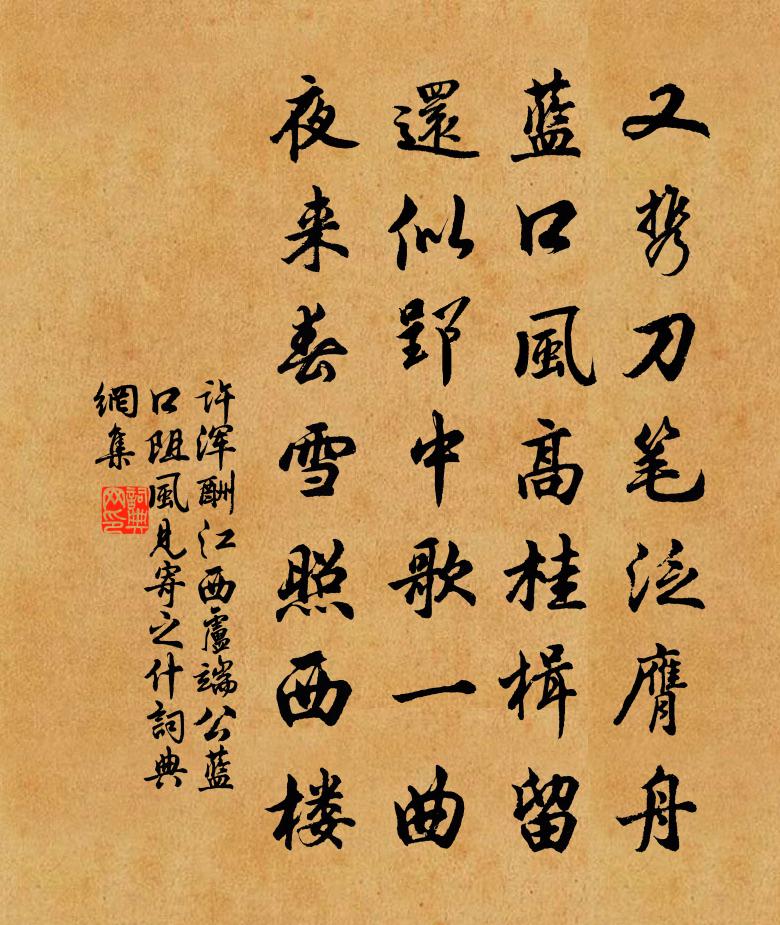 又携刀笔泛膺舟
蓝口風高桂楫留
還似郢中歌一曲
夜来春雪照西楼
许浑酬江西盧端公蓝
口阻風見寄之什詞典
網集
詞典
网印